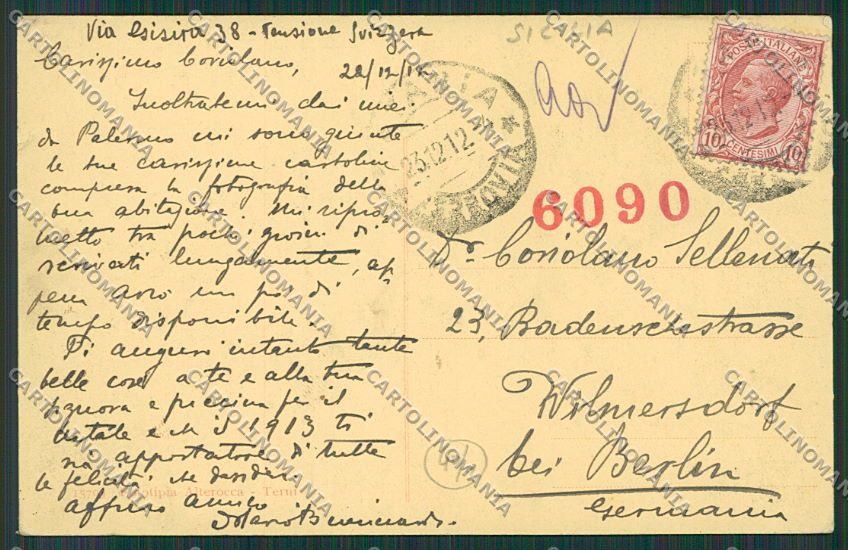 Via 38 - Pensione Svizzera
Carissimo Coriolano,
22/12/12
Inoltratemi dai miei
da Palermo mi sono giunte
le tue carissime cartoline
compresa la fotografia della
tua abitazione. Mi ripro-
metto tra pochi giorni di
scriverti lungamente, ap-
pena avrò un po' di
tempo disponibile.
Ti auguro intanto tante
belle cose a te e alla tua
signora e piccina per il
natale e che il 1913 ti
sia apportatore di tutte
le felicità che desideri
affmo amico
15790 Fototipia Alterocca - Terni
SICILIA
23.12.12
FERROVIA
POSTE ITALIANE
10 CENTESIMI 10
6090
Dr. Coriolano
23, Badenschestrasse
Wilmersdorf
bei Berlin
Germania
CARTOLINOMANIA